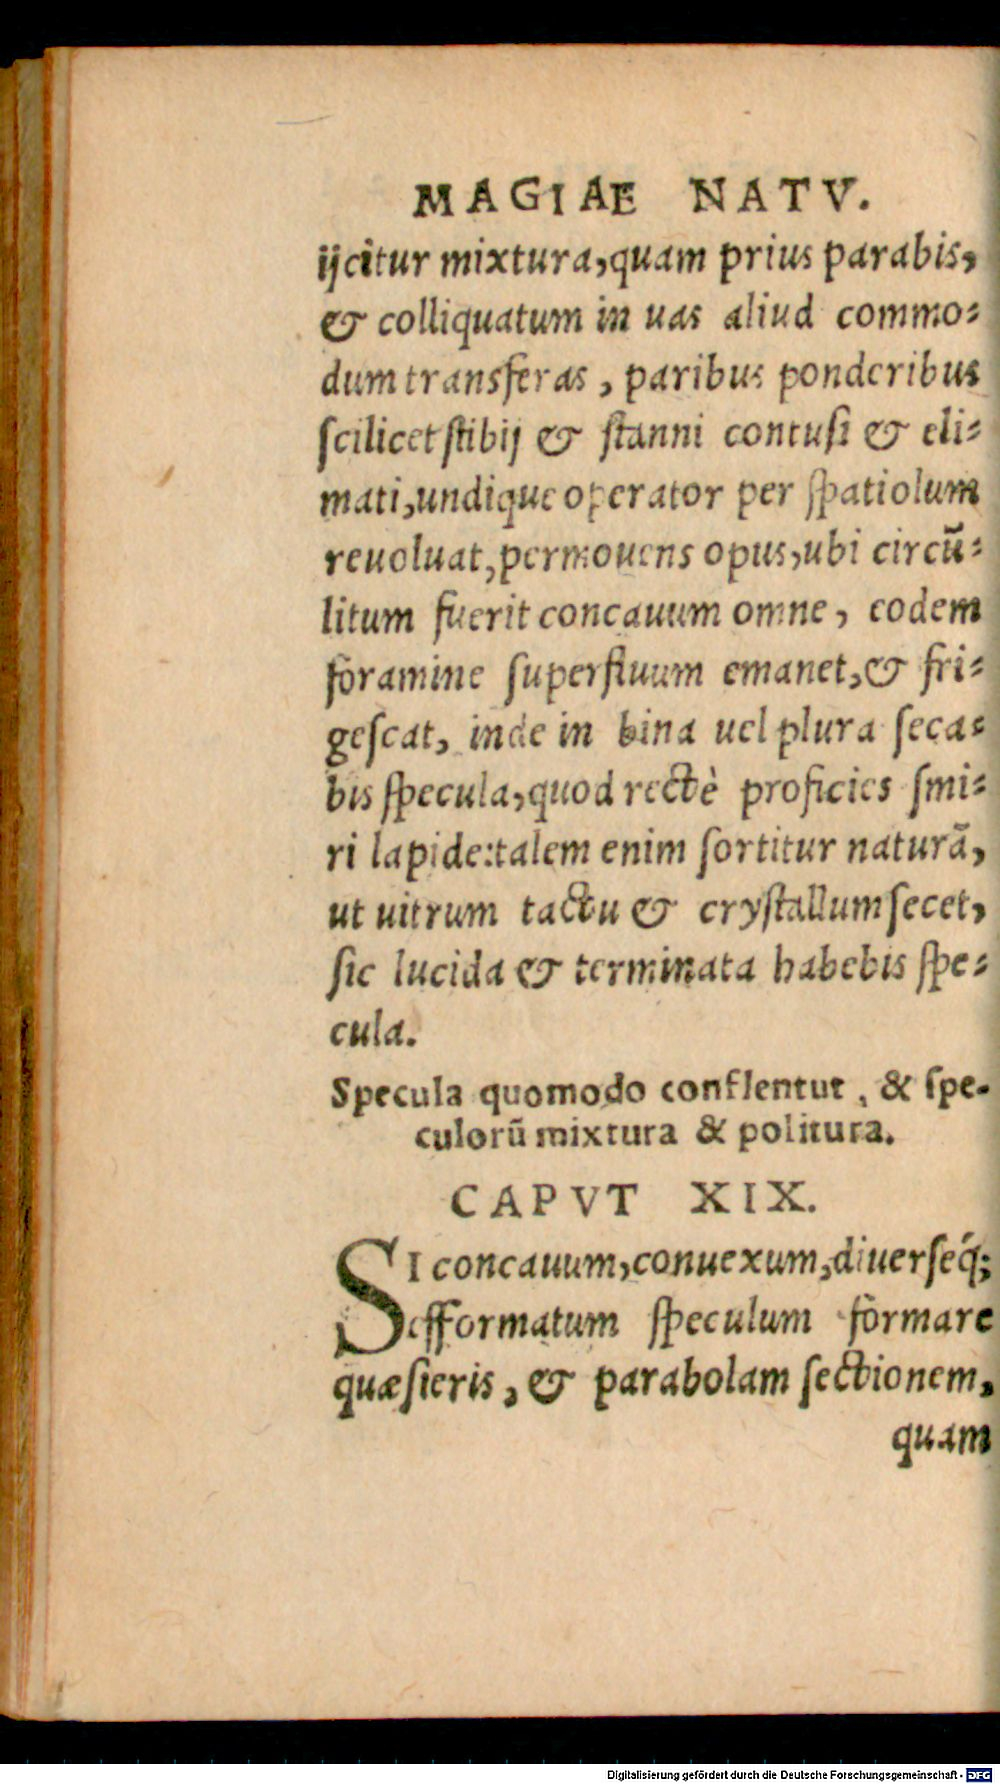 MAGIAE NATV.
ijcitur mixtura, quam prius parabis,
& colliquatum in uas aliud commo-
dum transferas, paribus ponderibus
scilicet stibij & stanni contusi & eli-
mati, undique operator per spatiolum
reuoluat, permouens opus, ubi circū-
litum fuerit concauum omne, eodem
foramine superfluum emanet, & fri-
gescat, inde in bina uel plura seca-
bis specula, quod rectè proficies smi-
ri lapide: talem enim sortitur naturā,
ut uitrum tactu & crystallum secet,
sic lucida & terminata habebis spe-
cula.
Specula quomodo conflentur, & spe-
culorū mixtura & politura.
CAPVT XIX.
SI concauum, conuexum, diuerseq́;
efformatum speculum formare
quæsieris, & parabolam sectionem,
quam
Digitalisierung gefördert durch die Deutsche Forschungsgemeinschaft - DFG